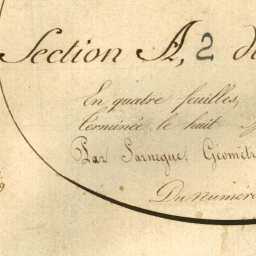 Section A, 2 d
En quatre feuilles,
terminée le huit
Par Sarnègue, Géomètr
Du numéro